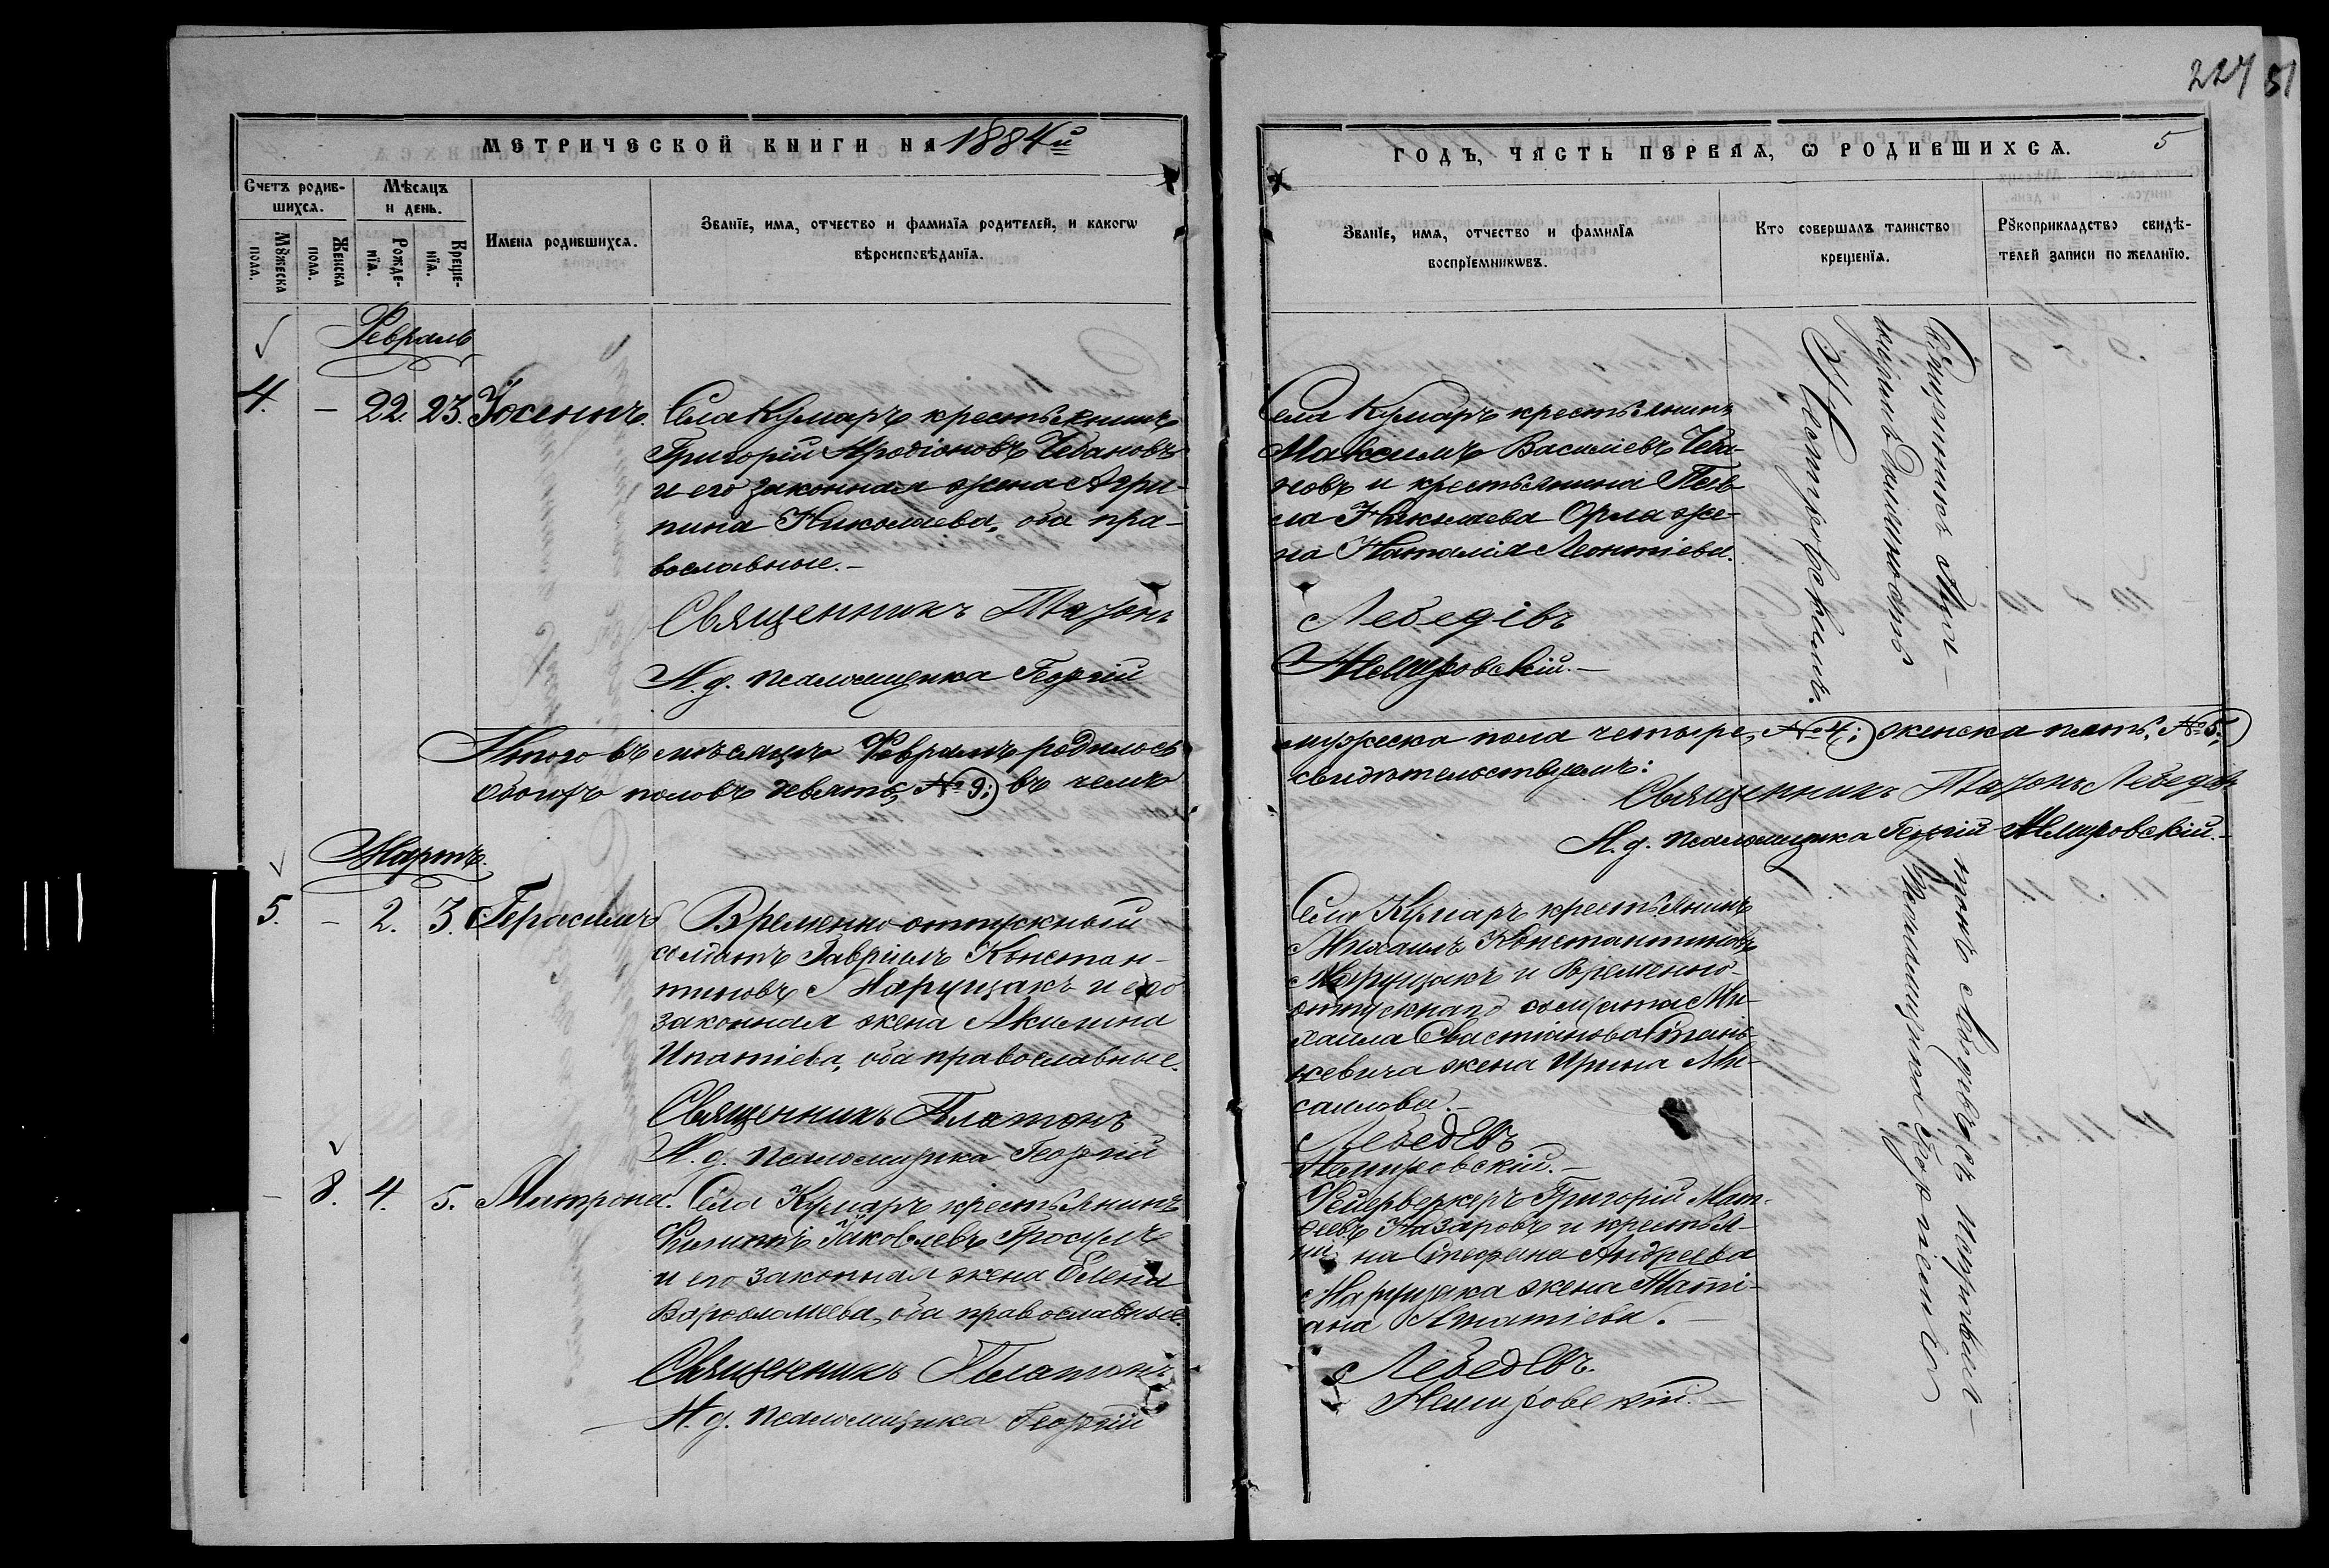 224 51
МЕТРИЧЕСКОЙ КНИГИ НА 1884й
Счетъ родив-
шихсѧ.
Мѣсѧцъ
и день.
Имена родившихсѧ.
Званїе, имѧ, отчество и фамилїѧ родителей, и какогѡ
вѣроисповѣданїѧ.
Мꙋжеска
пола.
Женска
пола.
Рожде-
нїѧ.
Креще-
нїѧ.
Февраль
4. — 22. 23. Іосифъ.
Села Кумаръ крестьянинъ
Григорій Иродіоновъ Чебановъ
и его законная жена Агри-
пина Николаева, оба пра-
вославные.—
Священникъ Платонъ
И. д. псаломщика Георгій
Итого въ мѣсяцѣ Февралѣ родилось
обоихъ половъ девять, №9; въ чемъ
Мартъ.
5. — 2. 3. Герасимъ
Временно отпускный
солдатъ Гавріилъ Констан-
тиновъ Марущакъ и его
законная жена Акилина
Ипатіева, оба православные.
Священникъ Платонъ
И. д. псаломщика Георгій
— 8. 4. 5. Матрона.
Села Кумаръ крестьянинъ
Филиппъ Іаковлевъ Гросулъ
и его законная жена Елена
Варѳоломеева, оба православные.
Священникъ Платонъ
И. д. псаломщика Георгій
ГОДЪ, ЧАСТЬ ПЕРВАѦ, Ѡ РОДИВШИХСѦ. 5
Званїе, имѧ, отчество и фамилїѧ
воспрїемникѡвъ.
Кто совершалъ таинство
крещенїѧ.
Рꙋкоприкладство свидѣ-
телей записи по желанїю.
Села Кумаръ крестьянинъ
Максимъ Василіевъ Чеба-
новъ и крестьянина Пав-
ла Николаева Орла же-
на Наталія Леонтіева.
Лебедевъ
Немировскій.—
Священникъ Пла-
тонъ Лебедевъ съ исправл.
псаломщика
Немировскимъ.
мужеска пола четыре, №4; женска пять, №5,
свидѣтельствуемъ:
Священникъ Платонъ Лебедевъ
И. д. псаломщика Георгій Немировскій.—
Села Кумаръ крестьянинъ
Михаилъ Константиновъ
Марущакъ и временно-
отпускнаго солдата Ми-
хаила Севастіанова Стань-
кевича жена Ирина Ми-
саилова.—
Лебедевъ
Немировскій.—
Фейерверкеръ Григорій Мат-
ѳеевъ Назаровъ и крестья-
нина Стефана Андреева
Марущака жена Таті-
ана Игнатіева.—
Лебедевъ.
Немировскій.—